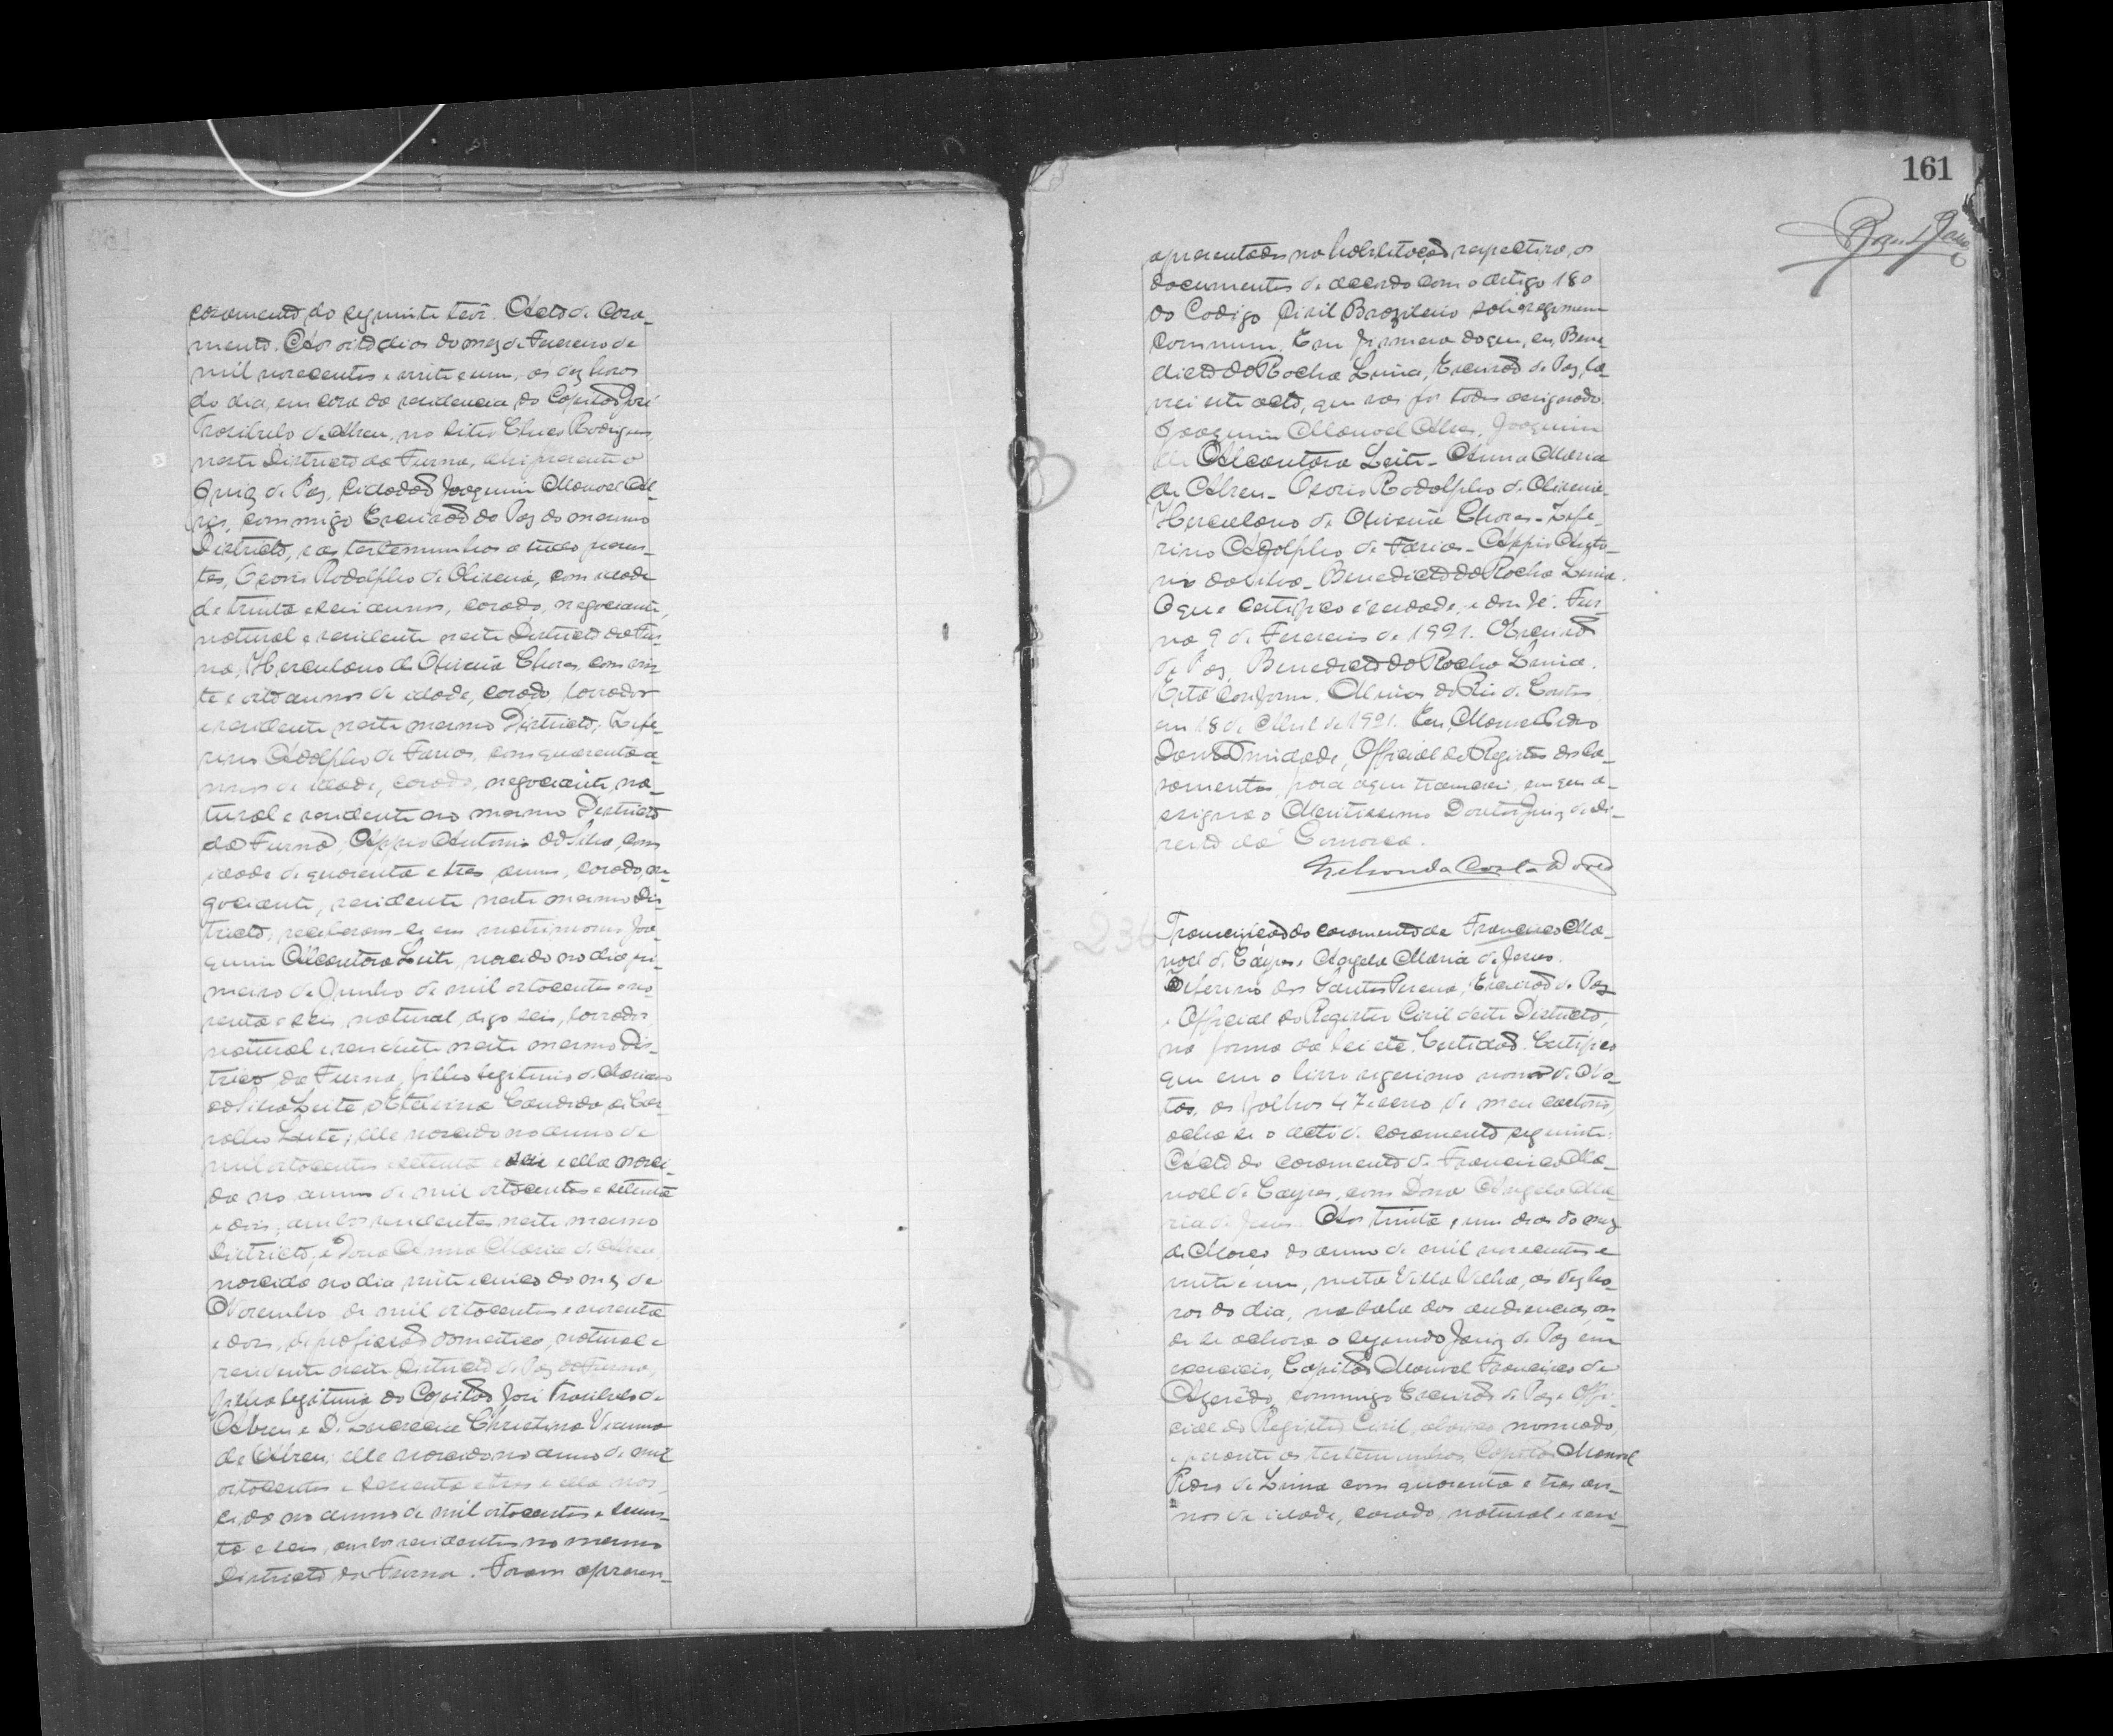 casamento, do seguinte teôr. Acto de Casa-
mento. Aos oito dias do mez de Fevereiro de
mil novecentos e vinte e um, as dez horas
do dia, em casa da residencia do Capitão José
Trasibulo de Abreu, no sitio Chico Rodrigues,
neste Districto da Furna, ahi presente o
Juiz de Paz, Cidadão Joaquim Manoel Al-
ves, commigo Escrivão de Paz do mesmo
Districto, e as testemunhas a tudo presen-
tes, Osorio Rodolpho de Oliveira, com idade
de trinta e seis annos, casado, negociante,
natural e residente neste Districto da Fur-
na, Herculano de Oliveira Chaves, com vin-
te e oito annos de idade, casado, lavrador
e residente neste mesmo Districto, Zefe-
rino Adolpho de Farias, com quarenta a-
nnos de idade, casado, negociante, na-
tural e residente no mesmo Districto
da Furna, Appio Antonio da Silva, com
idade de quarenta e tres annos, casado, ne-
gociante, residente neste mesmo Dis-
tricto, receberam-se em matrimonio Joa-
quim Alcantara Leite, nascido no dia pri-
meiro de Junho de mil oitocentos e no-
venta e seis, natural, digo seis, lavrador,
natural e residente neste mesmo Dis-
tricto da Furna, filho legitimo de Mariano
da Silva Leite e Etelvina Candida de Car-
valho Leite; elle nascido no anno de
mil oitocentos e setenta e seis e ella nasci-
da no anno de mil oitocentos e setenta
e dois, ambos residentes neste mesmo
Districto, e Dona Anna Maria de Abreu,
nascida no dia vinte e cinco do mez de
Novembro de mil oitocentos e noventa
e dois, de profissão domestica, natural e
residente neste Districto de Paz da Furna,
filha legitima do Capitão José Trasibulo de
Abreu e D. Lucrecia Christina Vianna
de Abreu; elle nascido no anno de mil
oitocentos e sessenta e tres e ella nas-
cida no anno de mil oitocentos e sessen-
ta e seis, ambos residentes no mesmo
Districto da Furna. Foram apresen-
161
apresentados na habilitação respectiva, os
documentos de accordo com o artigo 180
do Codigo Civil Brazileiro sob o regimem
commum. Em firmeza do que, eu, Bene-
dicto da Rocha Lima, Escrivão de Paz, la-
vrei este acto, que vae por todos assignado.
Joaquim Manoel Alves. Joaquim
de Alcantara Leite - Anna Maria
de Abreu - Osorio Rodolpho de Oliveira -
Herculano de Oliveira Chaves - Zefe-
rino Adolpho de Farias - Appio Anto-
nio da Silva - Benedicto da Rocha Lima.
O que certifico é verdade, e dou fé. Fur-
na 9 de Fevereiro de 1921. O Escrivão
de Paz, Benedicto da Rocha Lima.
Está conforme. Minas do Rio de Contas,
em 18 de Abril de 1921. Eu, Manoel Pedro
Trindade, Official do Registro dos Ca-
samentos, para aqui transcrevi, em que a-
ssigna o Meritissimo Doutor Juiz de Di-
reito da Comarca.
Nelson da Costa
236
Transcripção do casamento de Francisco Ma-
noel de Cayres e Angela Maria de Jesus.
Zeferino dos Santos Pereira, Escrivão de Paz
e Official do Registro Civil deste Districto,
na forma da lei etc. Certidão. Certifico
que em o livro vigesimo nono de No-
tas, as folhas 47 e verso de meu cartorio,
acha-se o acto de casamento seguinte:
Acto do casamento de Francisco Ma-
noel de Cayres, com Dona Angela Ma-
ria de Jesus. Aos trinta e um dias do mez
de Março do anno de mil novecentos e
vinte e um, nesta Villa Velha, as dez ho-
ras do dia, na sala das audiencias, on-
de se achava o segundo Juiz de Paz em
exercicio, Capitão Manoel Francisco de
Azevêdo, commigo Escrivão de Paz e Offi-
cial do Registro Civil, abaixo nomeado,
e perante as testemunhas, Capitão Manoel
Pedro de Lima com quarenta e tres an-
nos de idade, casado, natural e resi-